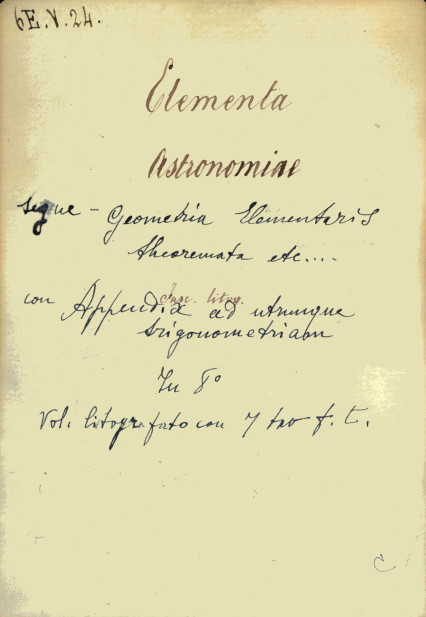 6E.V.24.
Elementa
Astronomiae
segue - Geometria Elementaris
theoremata etc....
Fasc. litog.
con Appendix ad utrumque
trigonometriam
In 8°
Vol. litografato con 7 tav f. t.
C